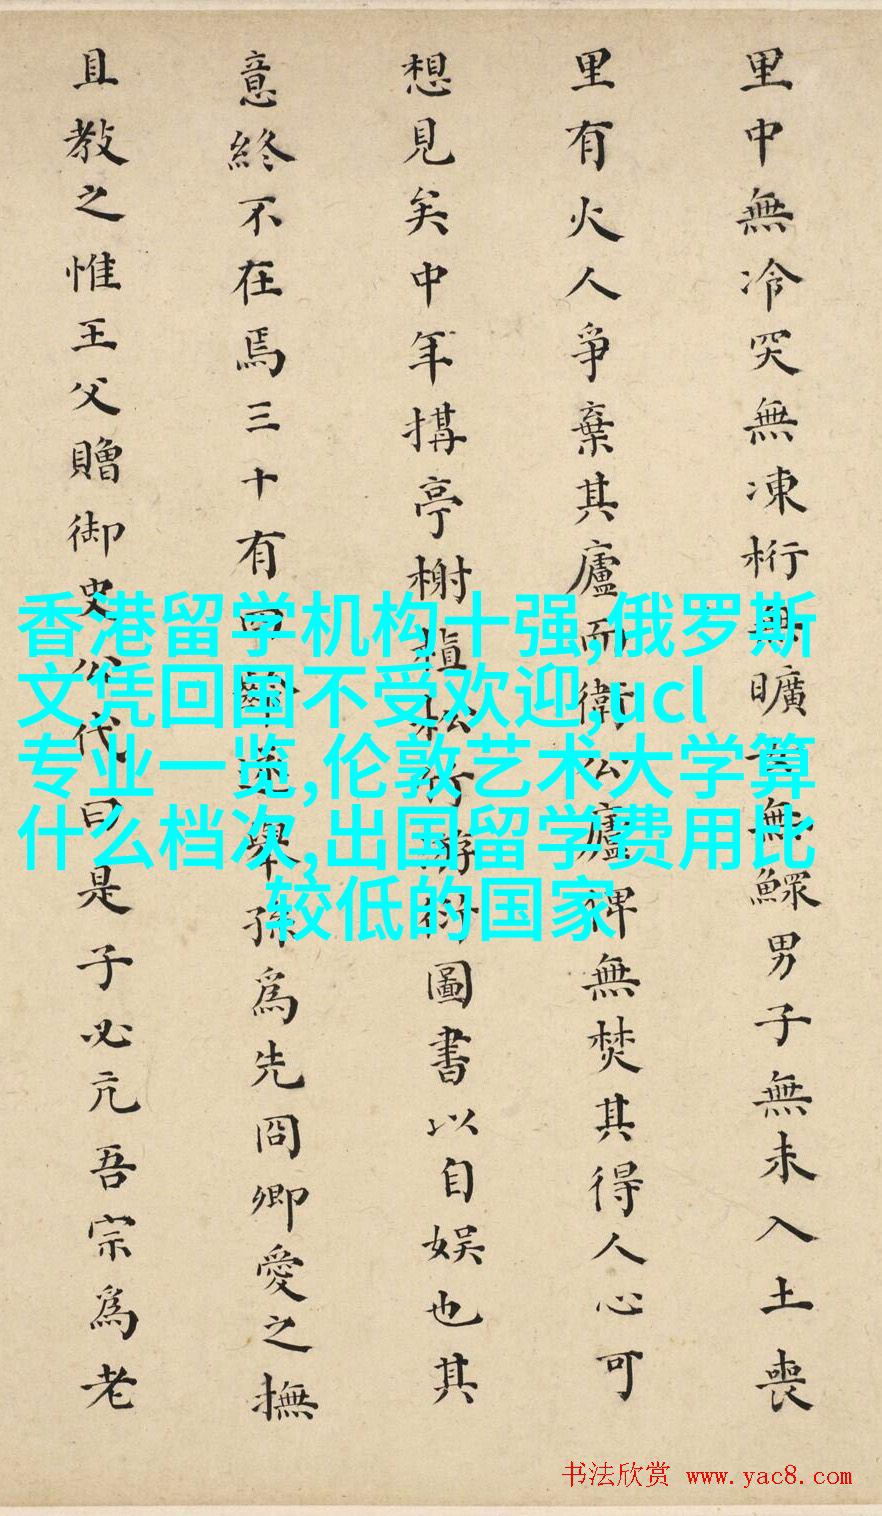 里中無冷突無凍桁曠無鰥男子無未入土喪
里有火人爭棄其廬而衛公廬俾無焚其得人心可
想見矣中年搆亭榭植松竹游衍圖書以自娛也其
意終不在焉三十有舉孫爲先冏卿愛之撫
且教之惟王父贈御史公代曰是子必亢吾宗爲老
香港留学机构十强,俄罗斯
文凭回国不受欢迎,ucl
专业一览,伦敦艺术大学算
什么档次,出国留学费用比
较低的国家
书法欣赏 www.yac8.com